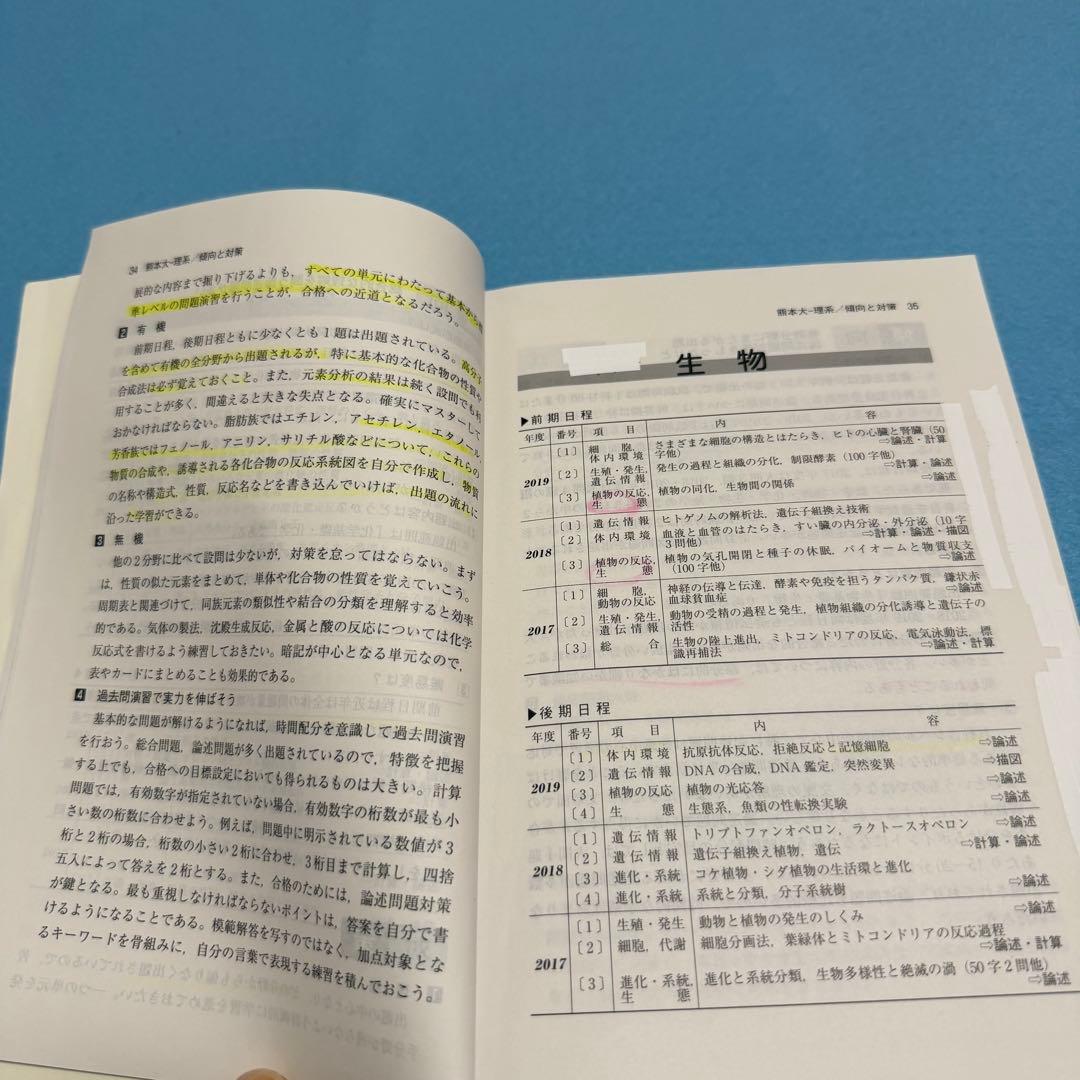 34 熊本大-理系／傾向と対策
展的な内容まで掘り下げるよりも，すべての単元にわたって基本から標
準レベルの問題演習を行うことが，合格への近道となるだろう。
2 有機
前期日程，後期日程ともに少なくとも1題は出題されている。高分子
を含めて有機の全分野から出題されるが，特に基本的な化合物の性質や
合成法は必ず覚えておくこと。また，元素分析の結果は続く設問でも利
用することが多く，間違えると大きな失点となる。確実にマスターして
おかなければならない。脂肪族ではエチレン，アセチレン，エタノール，
芳香族ではフェノール，アニリン，サリチル酸などについて，これらの
物質の合成や，誘導される各化合物の反応系統図を自分で作成し，物質
の名称や構造式，性質，反応名などを書き込んでいけば，出題の流れに
沿った学習ができる。
3 無機
他の2分野に比べて設問は少ないが，対策を怠ってはならない。まず
は，性質の似た元素をまとめて，単体や化合物の性質を覚えていこう。
周期表と関連づけて，同族元素の類似性や結合の分類を理解すると効率
的である。気体の製法，沈殿生成反応，金属と酸の反応については化学
反応式を書けるよう練習しておきたい。暗記が中心となる単元なので，
表やカードにまとめることも効果的である。
4 過去問演習で実力を伸ばそう
基本的な問題が解けるようになれば，時間配分を意識して過去問演習
を行おう。総合問題，論述問題が多く出題されているので，特徴を把握
する上でも，合格への目標設定においても得られるものは大きい。計算
問題では，有効数字が指定されていない場合，有効数字の桁数が最も小
さい数の桁数に合わせよう。例えば，問題中に明示されている数値が3
桁と2桁の場合，桁数の小さい2桁に合わせ，3桁目まで計算し，四捨
五入によって答えを2桁とする。また，合格のためには，論述問題対策
が鍵となる。最も重視しなければならないポイントは，答案を自分で書
けるようになることである。模範解答を写すのではなく，加点対象とな
るキーワードを骨組みに，自分の言葉で表現する練習を積んでおこう。
熊本大-理系／傾向と対策 35
生物
▶前期日程
年度 番号 項目 内容
2019 〔1〕 細胞，体内環境 さまざまな細胞の構造とはたらき，ヒトの心臓と腎臓（50字他） ⇨論述・計算
〔2〕 生殖・発生，遺伝情報 発生の過程と組織の分化，制限酵素（100字他） ⇨計算・論述
〔3〕 植物の反応，生態 植物の同化，生物間の関係 ⇨論述
2018 〔1〕 遺伝情報 ヒトゲノムの解析法，遺伝子組換え技術
〔2〕 体内環境 血液と血管のはたらき，すい臓の内分泌・外分泌（10字3問他） ⇨計算・論述・描図
〔3〕 植物の反応，生態 植物の気孔開閉と種子の休眠，バイオームと物質収支（100字他） ⇨論述
2017 〔1〕 細胞，動物の反応 神経の伝導と伝達，酵素や免疫を担うタンパク質，鎌状赤血球貧血症 ⇨論述
〔2〕 生殖・発生，遺伝情報 動物の受精の過程と発生，植物組織の分化誘導と遺伝子の活性
〔3〕 総合 生物の陸上進出，ミトコンドリアの反応，電気泳動法，標識再捕法 ⇨論述・計算
▶後期日程
年度 番号 項目 内容
2019 〔1〕 体内環境 抗原抗体反応，拒絶反応と記憶細胞 ⇨論述
〔2〕 遺伝情報 DNAの合成，DNA鑑定，突然変異 ⇨描図
〔3〕 植物の反応 植物の光応答 ⇨論述
〔4〕 生態 生態系，魚類の性転換実験 ⇨論述
2018 〔1〕 遺伝情報 トリプトファンオペロン，ラクトースオペロン ⇨論述
〔2〕 遺伝情報 遺伝子組換え植物，遺伝 ⇨計算・論述
〔3〕 進化・系統 コケ植物・シダ植物の生活環と進化
〔4〕 進化・系統 系統と分類，分子系統樹 ⇨論述
2017 〔1〕 生殖・発生 動物と植物の発生のしくみ ⇨論述
〔2〕 細胞，代謝 細胞分画法，葉緑体とミトコンドリアの反応過程 ⇨論述・計算
〔3〕 進化・系統，生態 進化と系統分類，生物多様性と絶滅の渦（50字2問他） ⇨論述